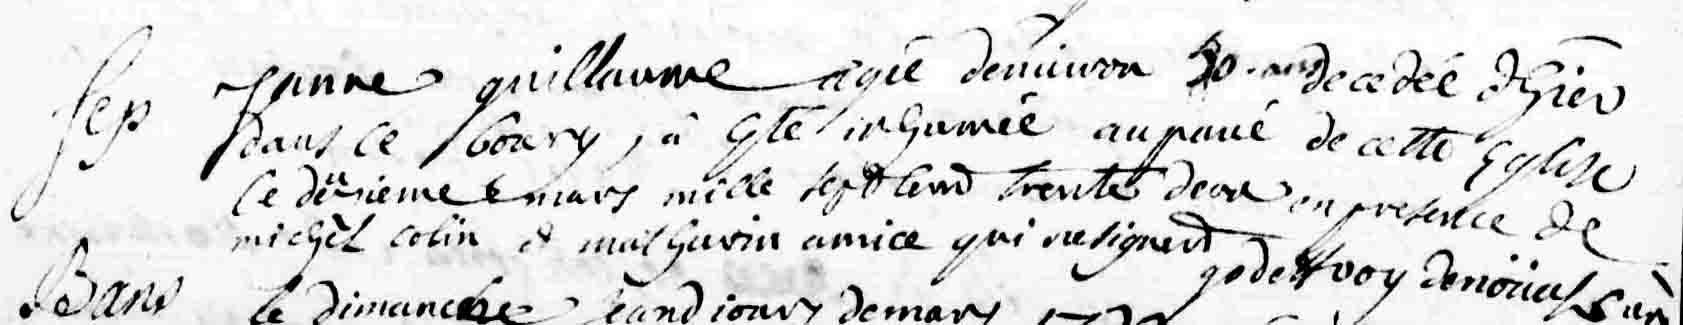 Sep Janne guillaume agée denuiron 50 ans decedée dhier
dans ce bourg, a esté inhumée au paué de cette Eglise
le dixieme mars mille sept cent trente deux en presence de
michel colin & mathurin amice qui ne signent
godeffroy
Bans le dimanche jour de mars